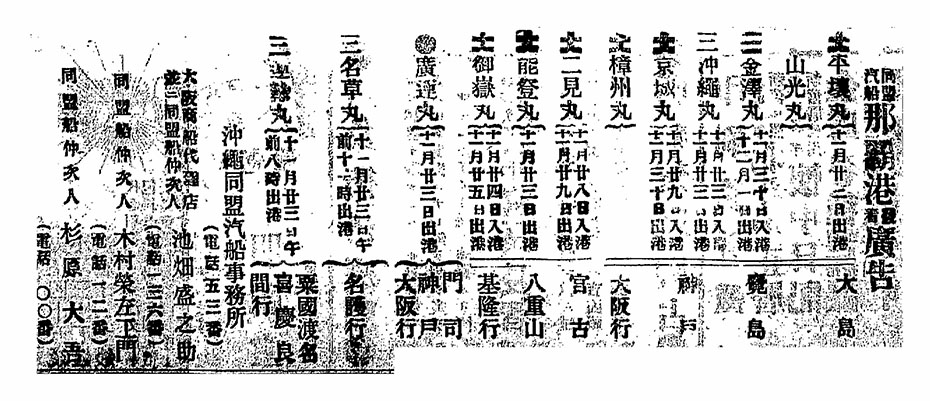 同盟汽船 那覇港發着廣告
平壤丸 十一月廿二日出港
山光丸
金澤丸 十一月三十日入港 十二月一日出港
沖繩丸 十一月廿三日入港 十一月廿三日出港
京城丸 十一月廿九日入港 十一月三十日出港
樟州丸
大島
鹿島
神戸
大阪行
二見丸 十一月廿八日入港 十一月廿九日出港
宮古
能登丸 十一月廿三日出港
八重山
御嶽丸 十一月廿四日入港 十一月廿五日出港
基隆行
廣運丸 十一月廿三日出港
門司
神戸
大阪行
三 名草丸 十一月廿三日午前十一時出港
名護行
丸 十一月廿三日午前八時出港
粟國渡名喜慶良間行
沖繩同盟汽船事務所
(電話五二番)
大阪商船代理店
並ニ同盟船仲次人 池畑盛之助
(電話一三六番)
同盟船仲次人 木村榮左衛門
(電話一二番)
同盟船仲次人 杉原大
(電話一〇〇番)